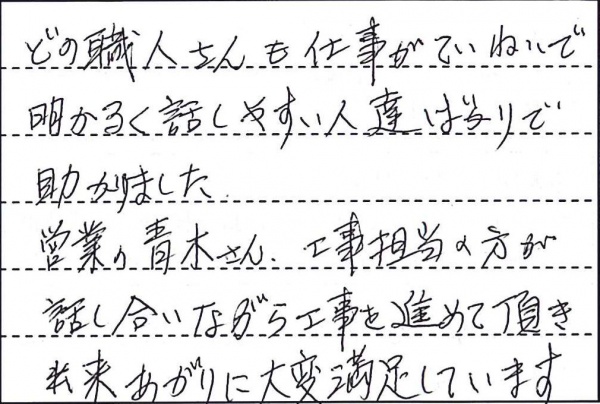 どの職人さんも仕事がていねいで
明かるく話しやすい人達ばかりで
助かりました
営業の青木さん、工事担当の方が
話し合いながら工事を進めて頂き
出来あがりに大変満足しています